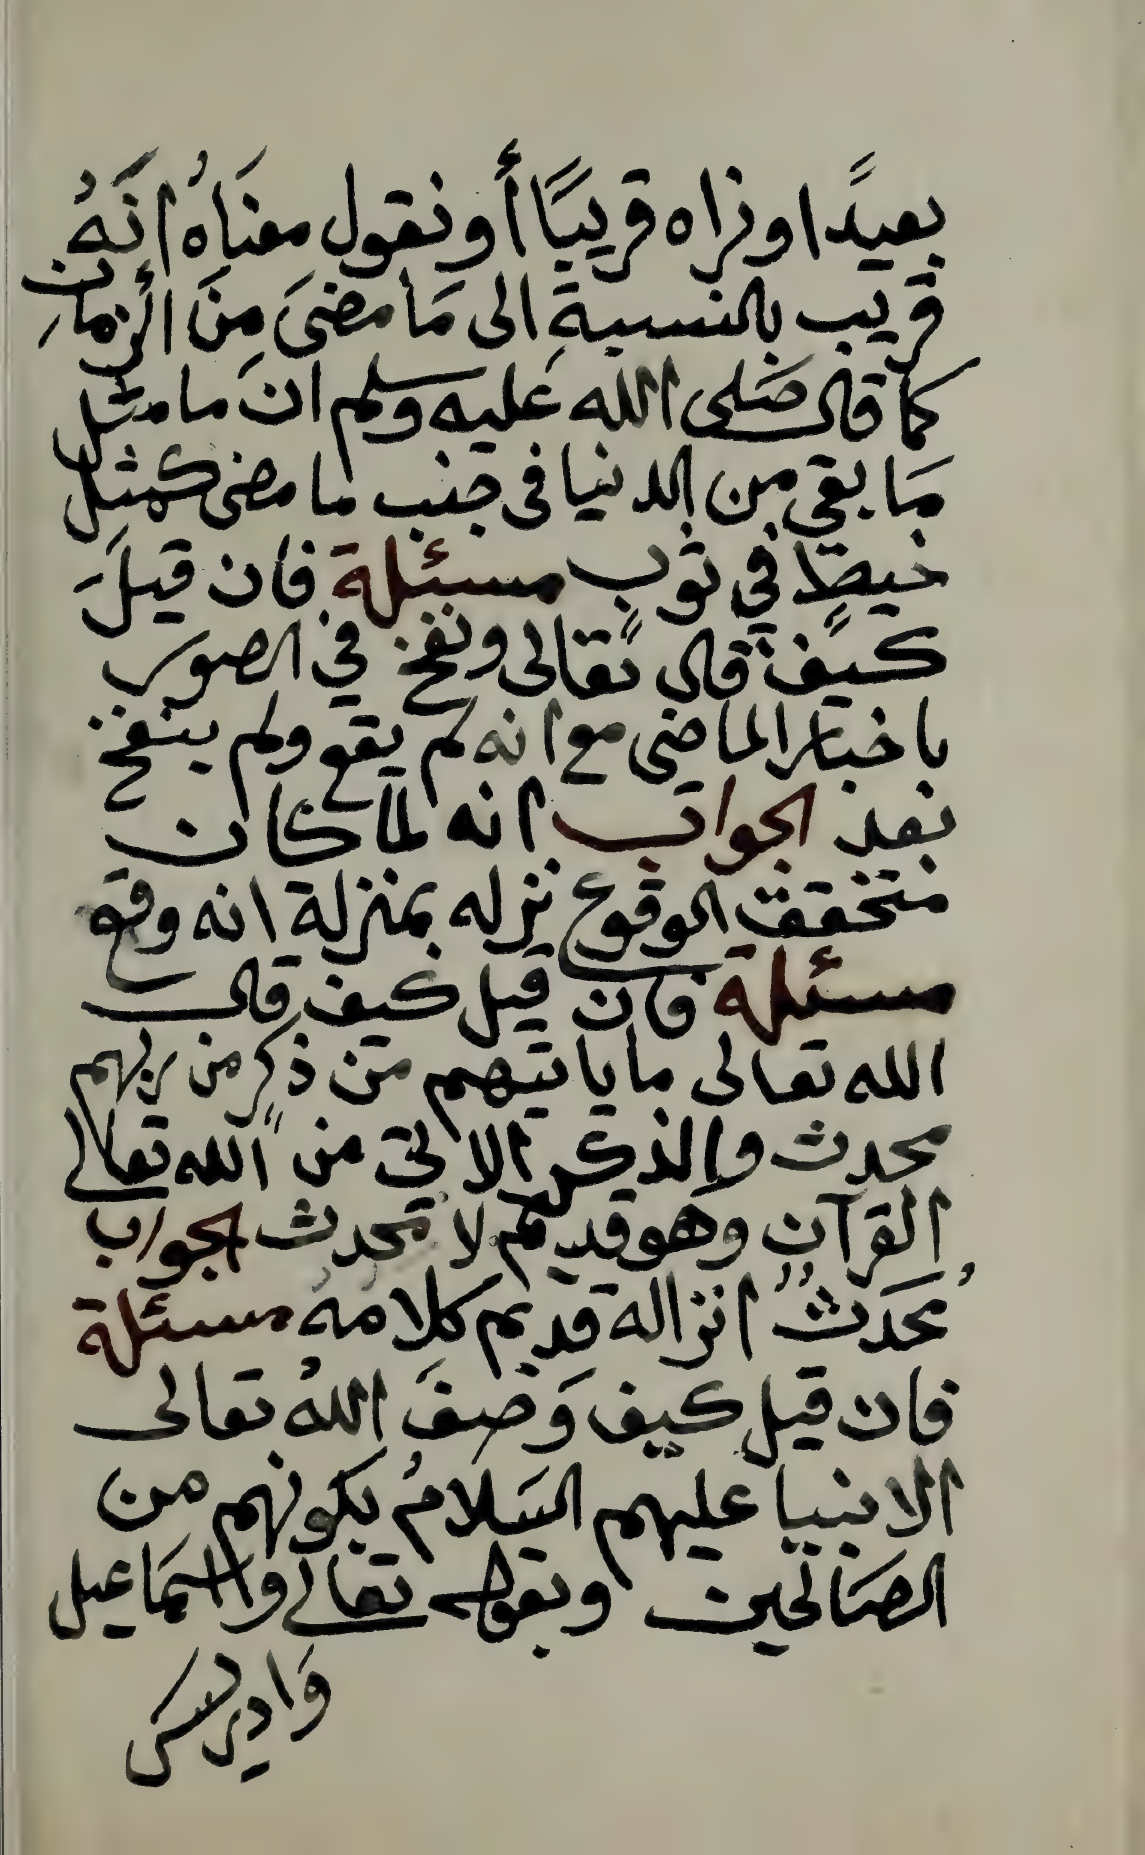 بعيدًا ونراه قريبًا أو نقول معنَاهُ انَهُ
قريب بالنسبةِ الى مَا مضىَ مِنَ الزمانِ
كما قال صَلى الله عَليه وسلم ان ما مثل
مَا بقي من الدنيا فى جنب ما مضى كمثل
خيطٍ في ثوب مسئلة فان قيلَ
كيف قال تعالى ونفخ في الصور
باخبار الماضى مع انه لم يقع ولم ينفخ
بعد الجواب انه لما كان
متحقق الوقوع نزله بمنزلة انه وقع
مسئلة فان قيل كيف قال
الله تعالى ما ياتيهم من ذكر من ربهم
محدث والذكر الاتي من الله تعالى
القرآن وهو قديم لا محدث الجواب
مُحدَثُ انزاله قديم كلامه مسئلة
فان قيل كيف وَصَفَ اللهُ تعالى
الانبيا عليهم السَلامُ بكونهم من
الصَالحين وبقوله تعالى واسمَاعيل
وَادريس